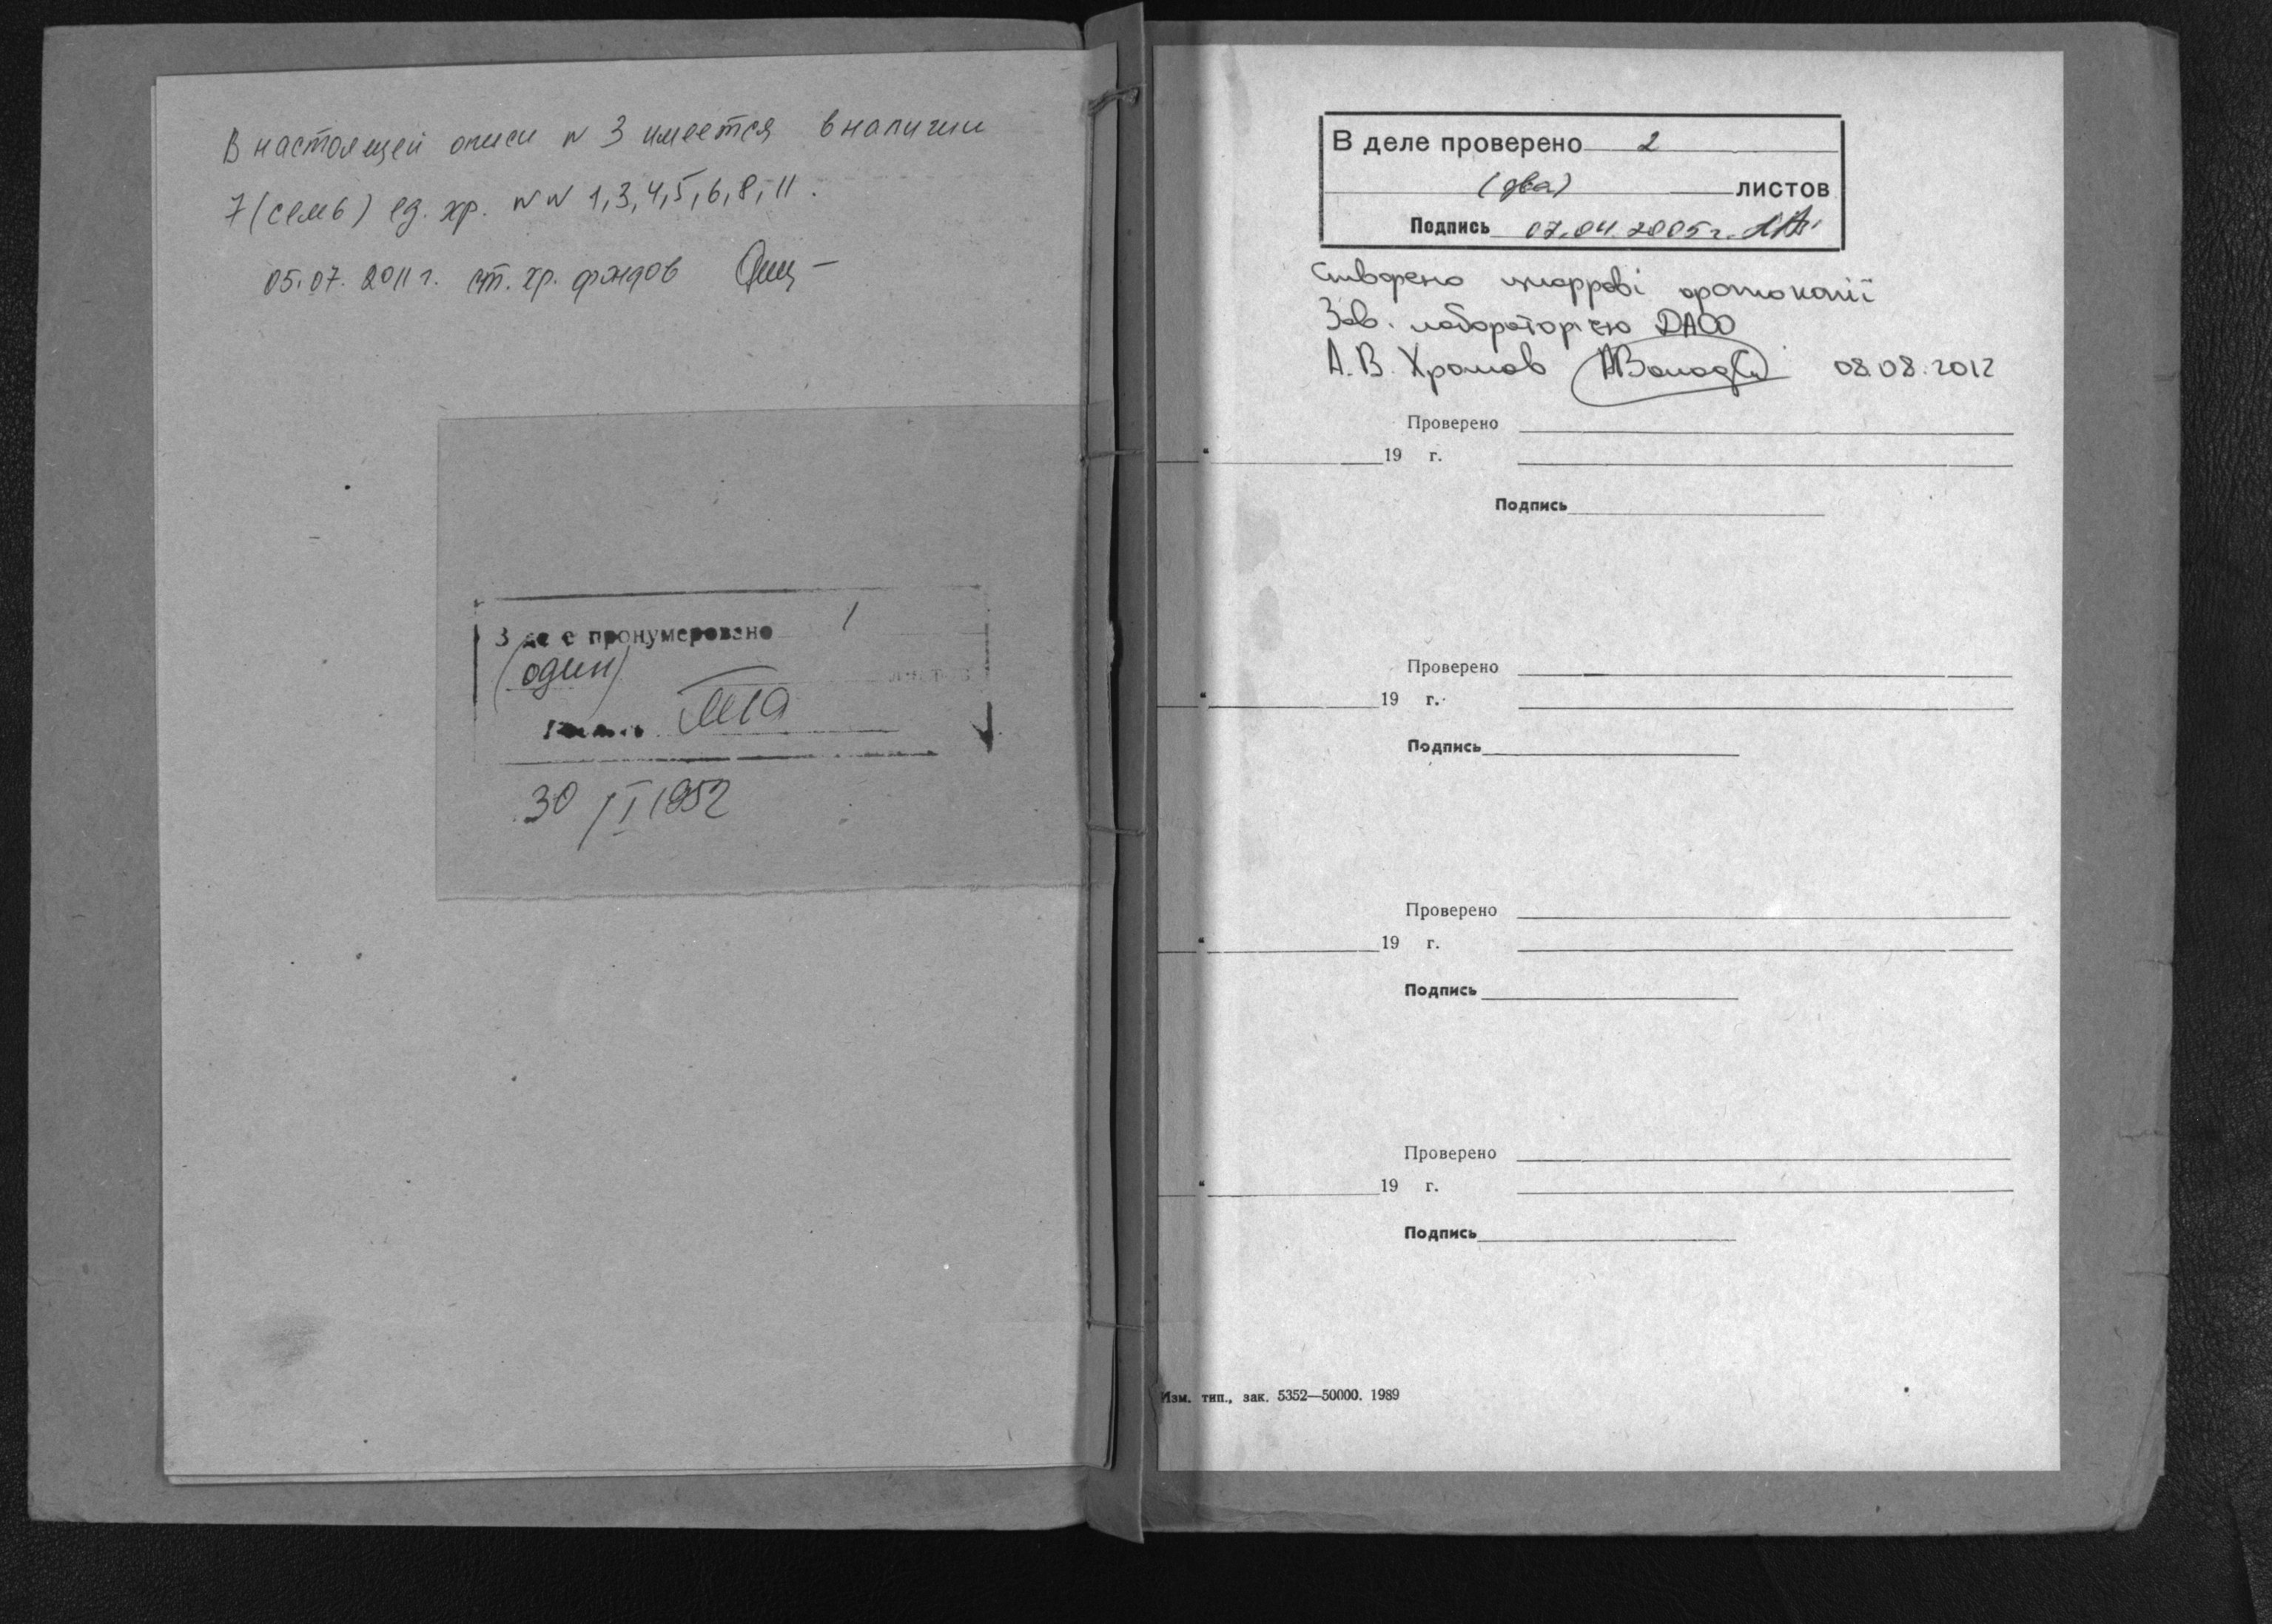 В настоящей описи N 3 имеется в наличии
7 (семь) ед. хр. NN 1,3,4,5,6,8,11.
05.07.2011 г. ст. хр. фондов
В деле пронумеровано 1
(один) листов
30/I 1952
В деле проверено 2
(два) листов
Подпись 07.04.2005 г.
Створено цифрові фотокопії
Зав. лабораторією ДАОО
А.В. Хромов 08.08.2012
Проверено
" 19 г.
Подпись
Проверено
" 19 г.
Подпись
Проверено
" 19 г.
Подпись
Проверено
" 19 г.
Подпись
Изм. тип., зак. 5352—50000. 1989